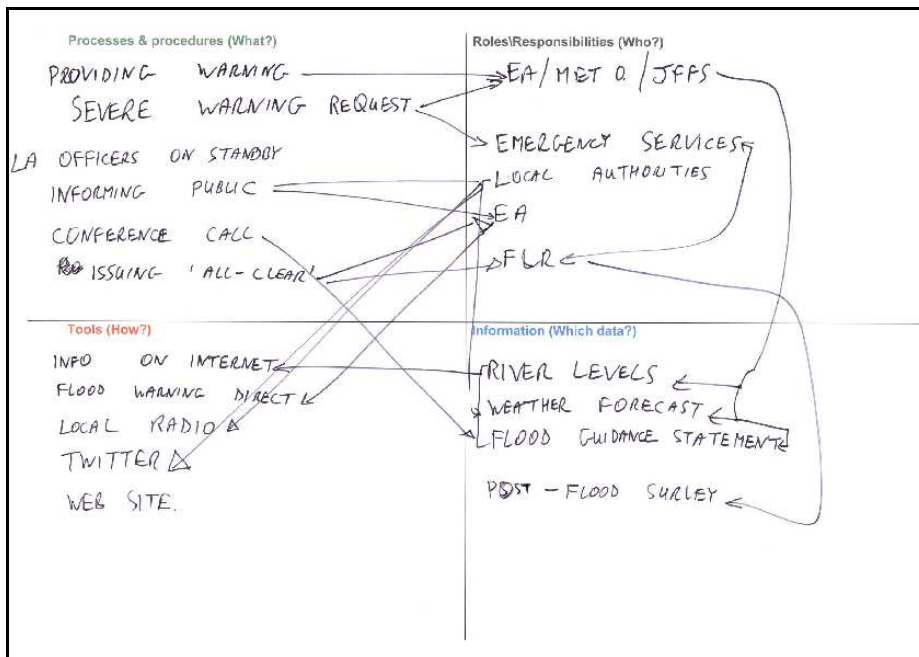 Processes & procedures (What?)
PROVIDING WARNING
SEVERE WARNING REQUEST
LA OFFICERS ON STANDBY
INFORMING PUBLIC
CONFERENCE CALL
ISSUING 'ALL-CLEAR'
Roles\Responsibilities (Who?)
EA/MET O/JFFS
EMERGENCY SERVICES
LOCAL AUTHORITIES
EA
FLR
Tools (How?)
INFO ON INTERNET
FLOOD WARNING DIRECT
LOCAL RADIO
TWITTER
WEB SITE.
Information (Which data?)
RIVER LEVELS
WEATHER FORECAST
FLOOD GUIDANCE STATEMENT
POST-FLOOD SURLEY